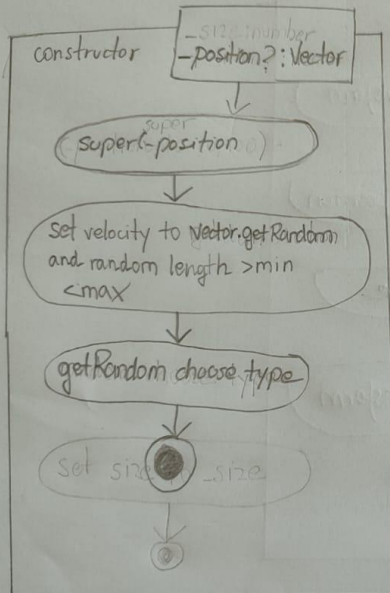 _size:number
constructor
-position?: Vector
super
super(-position)
set velocity to Vector.getRandom
and random length >min
<max
getRandom choose type
set size _size